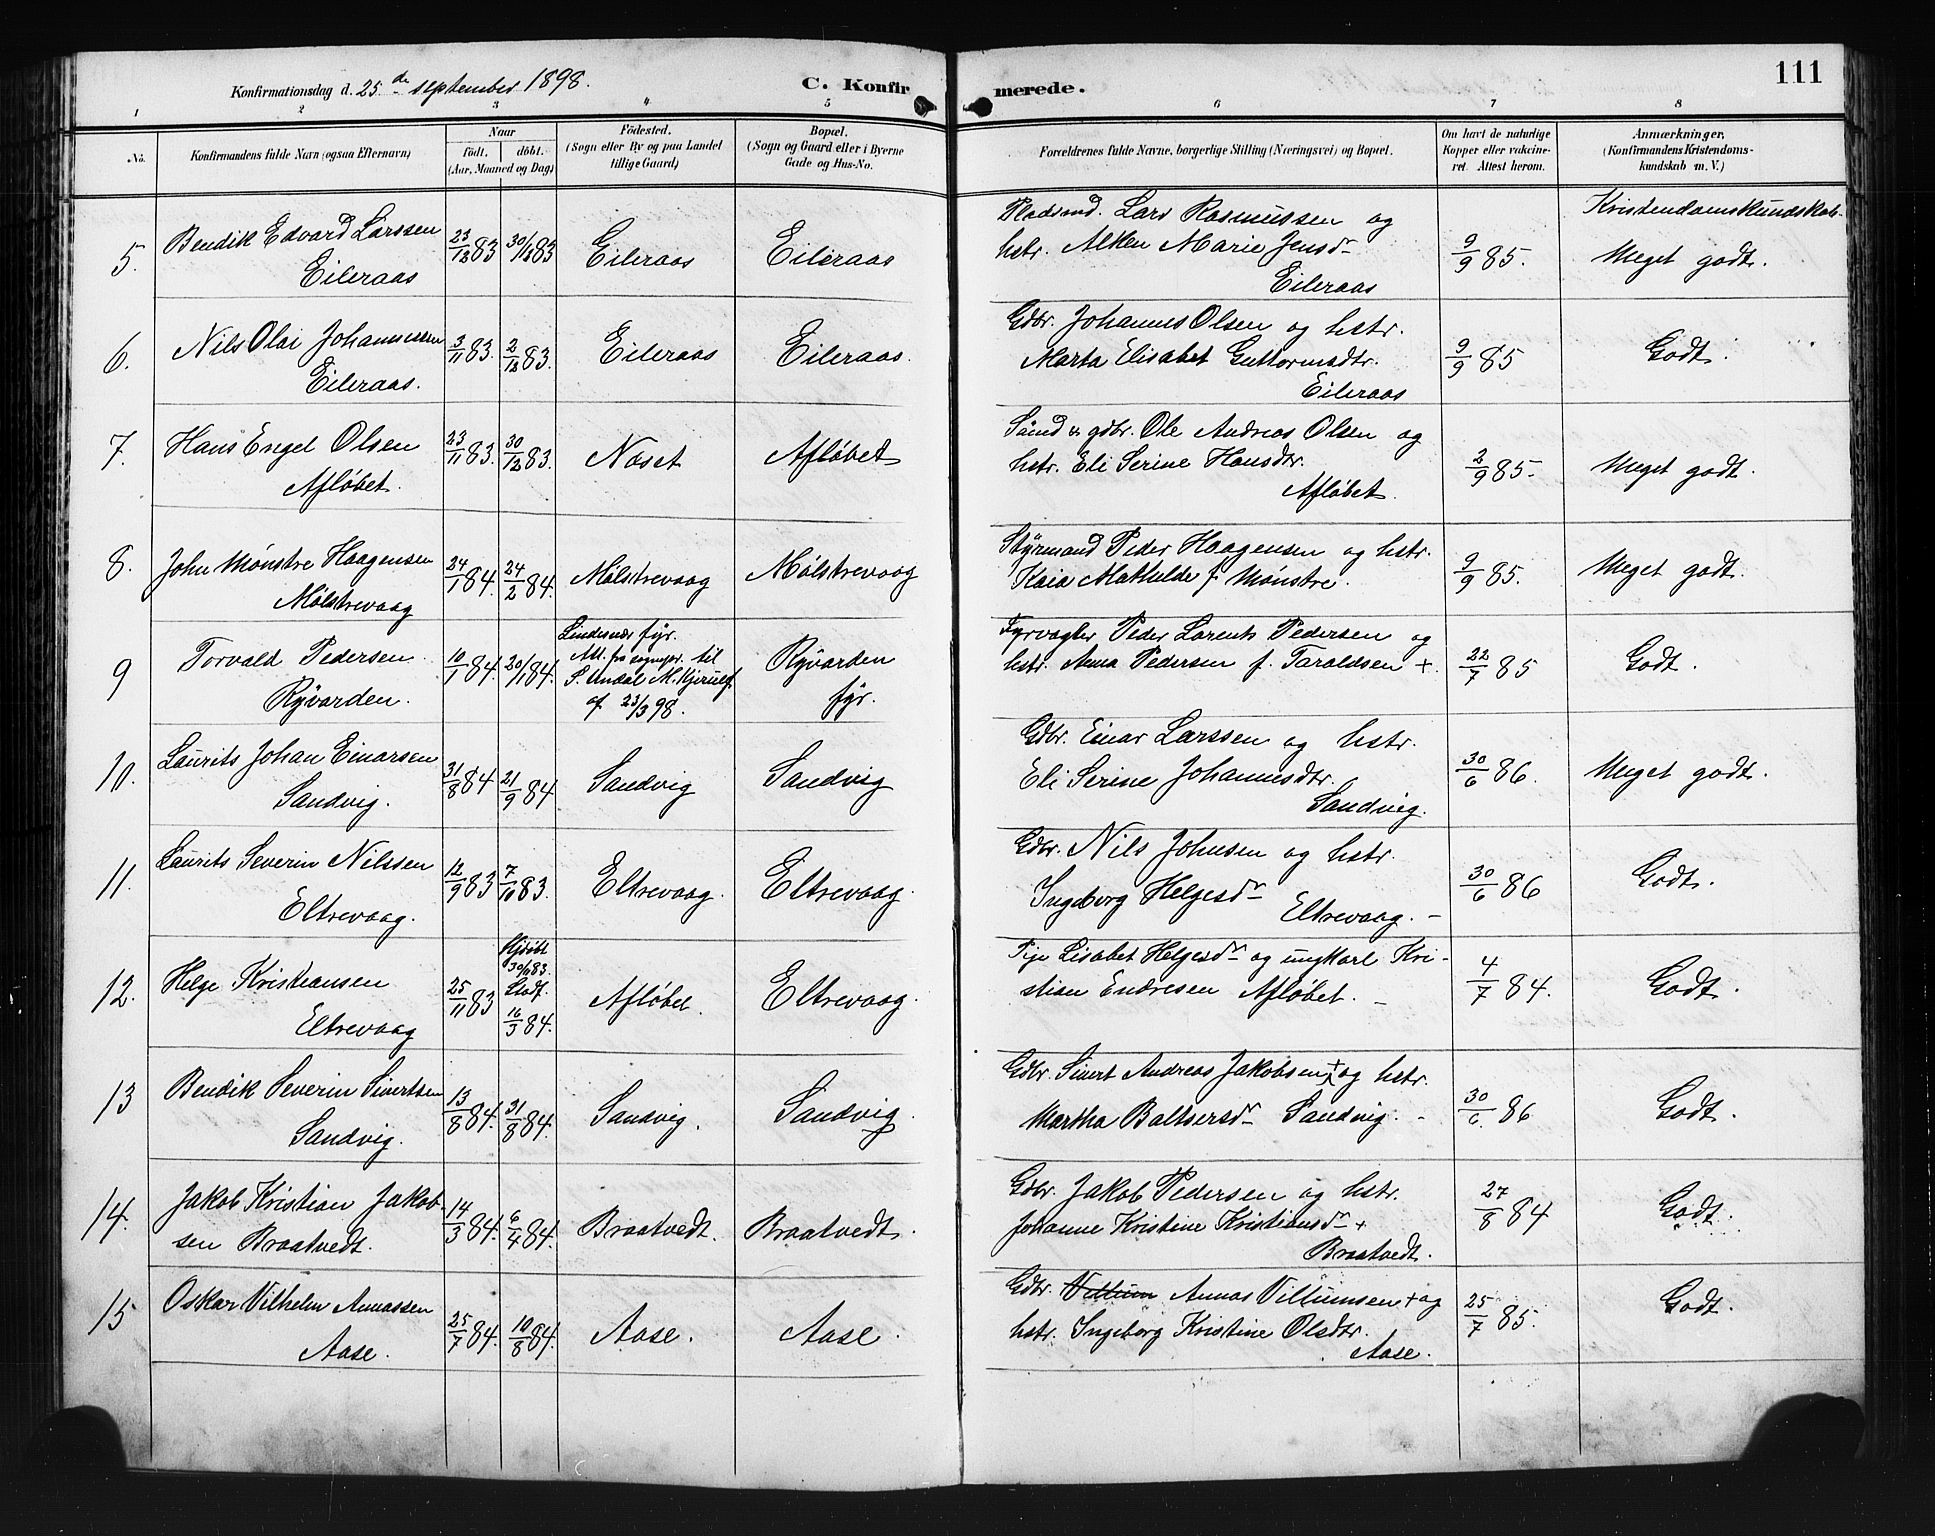 Konfirmationsdag d. 25.de september 1898.
C. Konfirmerede.
111
1 2 3 4 5 6 7 8
No.
Konfirmandens fulde Navn (ogsaa Efternavn)
Naar
födt. döbt.
(Aar, Maaned og Dag)
Födested.
(Sogn eller By og paa Landet
tillige Gaard)
Bopæl.
(Sogn og Gaard eller i Byerne
Gade og Hus-No.
Forældrenes fulde Navne, borgerlige Stilling (Næringsvei) og Bopæl.
Om havt de naturlige
Kopper eller vakcine-
ret. Attest herom.
Anmærkninger,
(Konfirmandens Kristendoms-
kundskab m. V.)
Kristendomskundskab.
5. Bendik Edvard Larssen
Eileraas
23/12 83 30/12 83 Eileraas Eileraas
Pladsmd. Lars Rasmussen og
hstr. Alken Marie Jensdr
Eileraas
9/9 85. Meget godt.
6. Nils Olai Johannessen
Eileraas.
3/11 83. 2/12 83. Eileraas Eileraas.
Gdbr. Johannes Olsen og hstr.
Marta Elisabet Guttormsdtr.
Eileraas
9/9 85 Godt.
7. Hans Engel Olsen
Afløbet.
23/11 83. 30/12 83. Næset Afløbet
gdbr. Ole Andreas Olsen og
hstr. Eli Serine Hansdtr.
Afløbet.
2/9 85. Meget godt
8. John Mønstre Haagensen
Mølstrevaag
24/1 84. 24/2 84. Mølstrevaag Mølstrevaag
Styrmand Peder Haagensen og hstr.
Kaia Mathilde f. Mønstre.
9/9 85. Meget godt.
9 Torvald Pedersen
Ryvarden.
10/1 84. 20/1 84.
Lindesnæs fyr.
Att. fra sognepr. til
S. Undal M. Kjerulf
af 23/3 98.
Ryvarden
fyr.
Fyrvogter Peder Lorents Pedersen og
hstr. Anna Pedersen f. Taraldsen +.
22/7 85 Godt.
10. Laurits Johan Einarsen
Sandvig.
31/8 84 21/9 84 Sandvig Sandvig
Gdbr. Einar Larssen og hstr.
Eli Serine Johannesdtr.
Sandvig.
30/6 86. Meget godt.
11. Laurits Severin Nilssen
Eltrevaag.
12/9 83 7/10 83. Eltrevaag. Eltrevaag.
Gdbr. Nils Johnsen og hstr.
Ingeborg Helgesdr Eltrevaag. –
30/6 86 Godt.
12. Helge Kristiansen
Eltrevaag
25/11 83
Hjdøbt
30/11 83.
Stadf.
16/3 84.
Afløbet. Eltrevaag.
Pige Lisabet Helgesdr og ungkarl Kri-
stian Endresen Afløbet. –
4/7 84. Godt.
13 Bendik Severin Sivertsen
Sandvig.
13/8 84. 31/8 84. Sandvig. Sandvig.
Gdbr. Sivert Andreas Jakobsen + og hstr.
Martha Baltsersdr Sandvig. –
30/6. 86 Godt.
14. Jakob Kristian Jakob-
sen Braatvedt.
14/3 84. 6/4 84. Braatvedt. Braatvedt.
Gdbr. Jakob Pedersen og hstr.
Johanne Kristine Kristiansdr +
Braatvedt.
27/8 84 Godt.
15 Oskar Vilhelm Annassen
Aase.
25/7 84. 10/8 84. Aase. Aase.
Gdbr. Villum Annas Villumsen + og
hstr. Ingeborg Kristine Olsdtr.
Aase.
25/7 85. Godt.